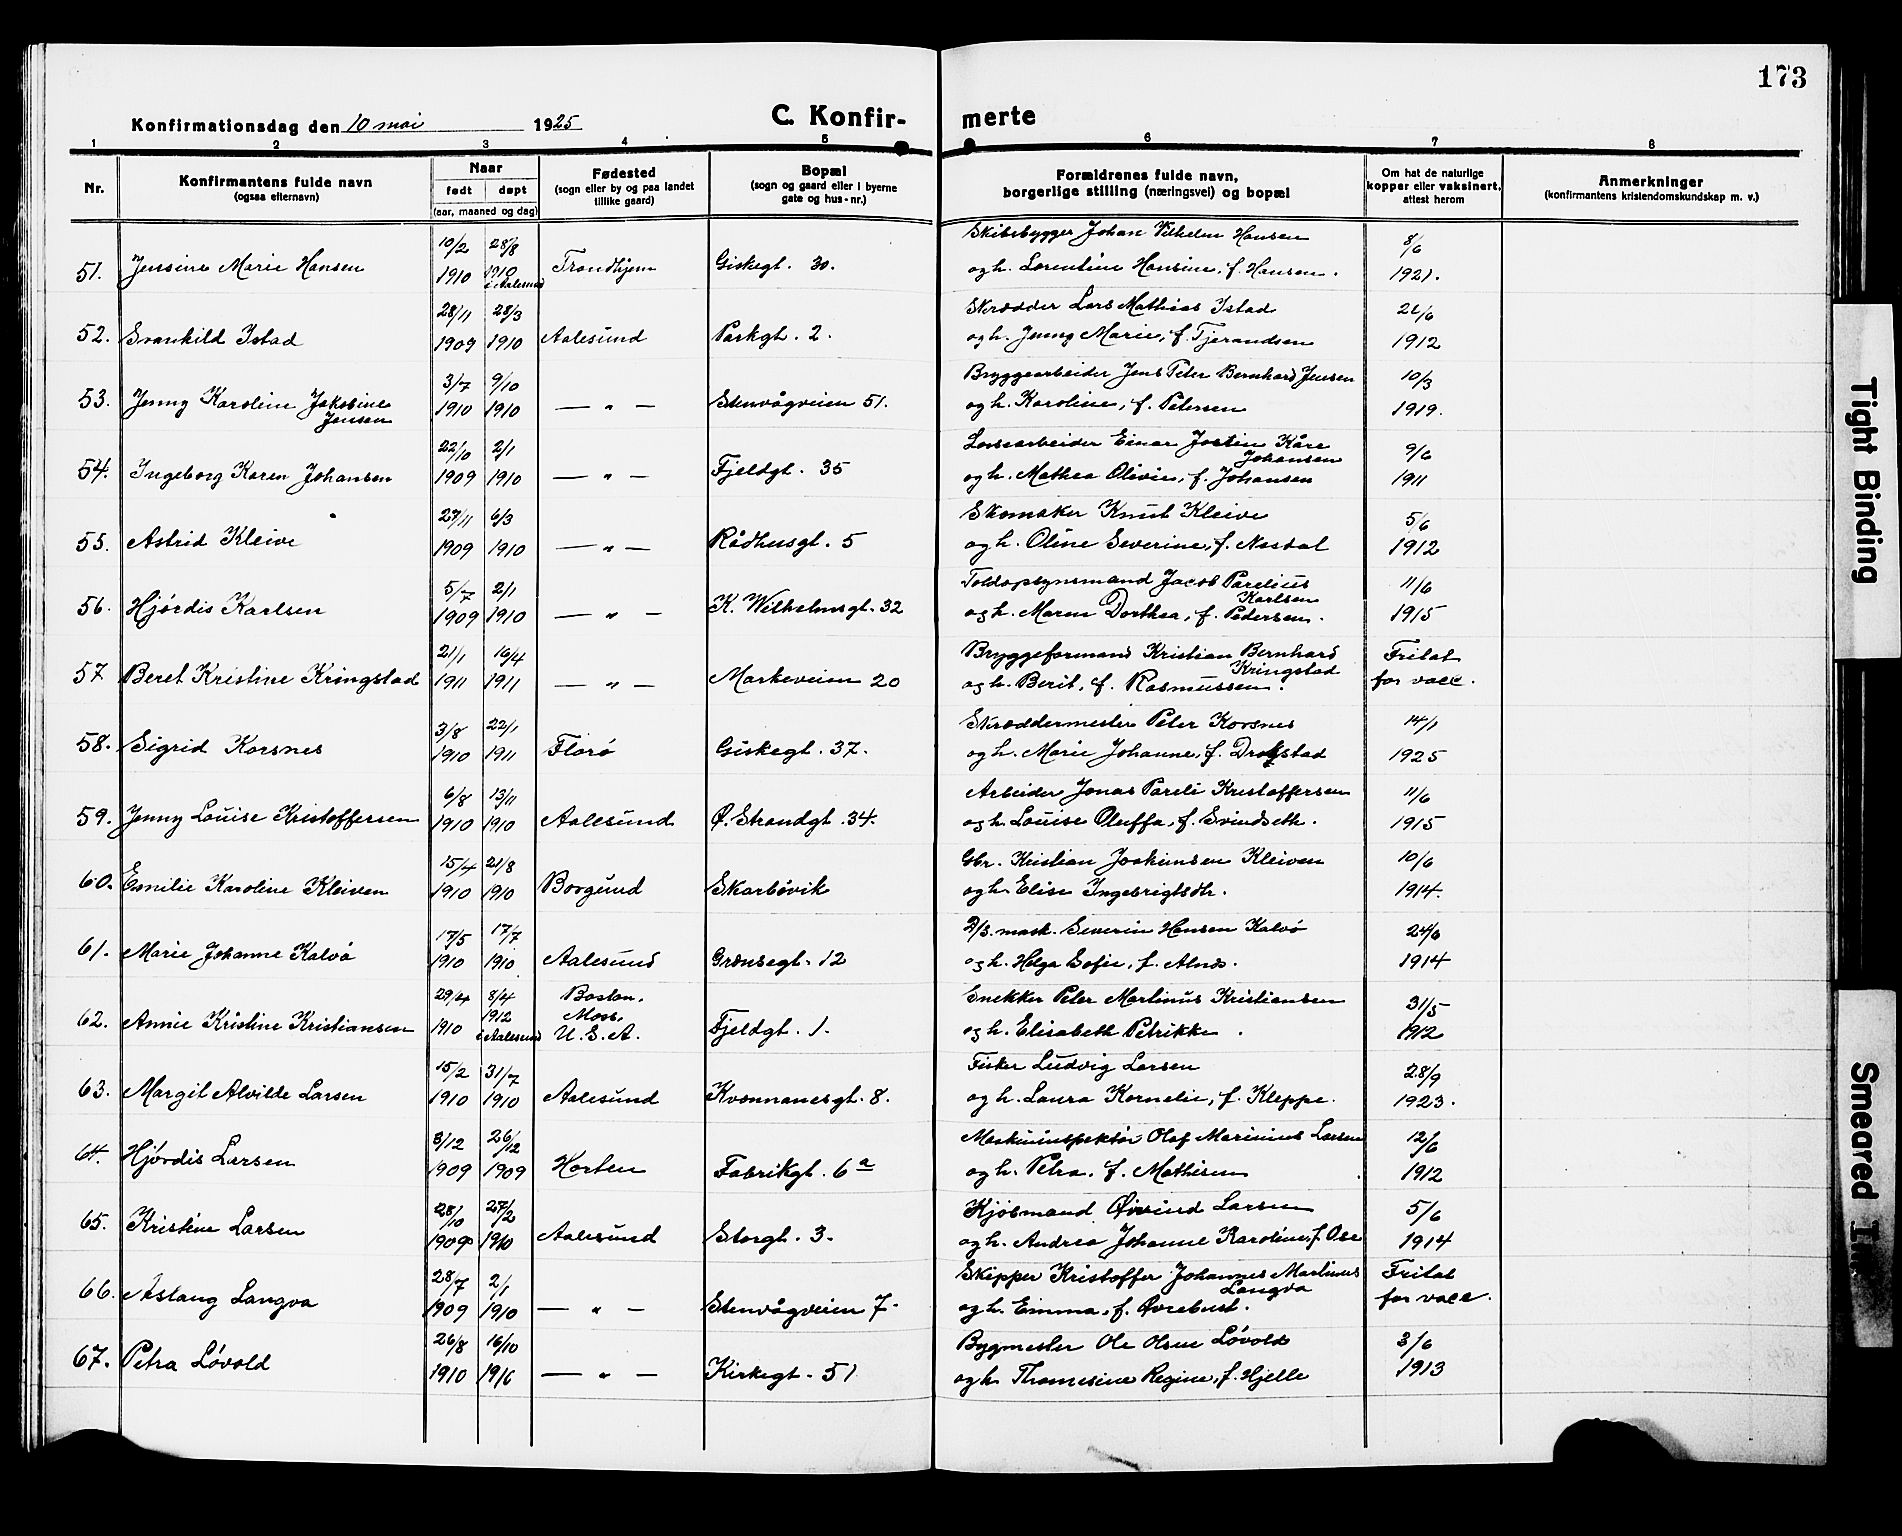 173
Konfirmationsdag den 10 mai 1925 C. Konfirmerte
1 2 3 4 5 6 7 8
Nr.
Konfirmantens fulde navn
(ogsaa efternavn)
Naar
født døpt
(aar, maaned og dag)
Fødested
(sogn eller by og paa landet
tillike gaard)
Bopæl
(sogn og gaard eller i byerne
gate og hus-nr.)
Forældrenes fulde navn,
borgerlige stilling (næringsvei) og bopæl
Om hat de naturlige
kopper eller vaksinert,
attest herom
Anmerkninger
(konfirmantens kristendomskundskap m. v.)
10/2 28/8 Skibsbygger Johan Vilhelm Hansen 8/6
51. Jensine Marie Hansen 1910 1910 i Aalesund Trondhjem Giskegt. 30. og h. Lorentine Hansine, f. Hansen. 1921.
28/11 28/3 Skrædder Lars Mathias Istad 21/6
52. Svanhild Istad 1909 1910 Aalesund Parkgt. 2. og h. Jenny Marie, f. Tjerandsen 1912
3/7 9/10 Bryggearbeider Jens Peter Bernhard Jensen 10/3
53. Jenny Karoline Jakobine Jensen 1910 1910 — " — Stenvågveien 51. og h. Karoline, f. Petersen 1919.
22/10 2/1 Lossearbeider Einar Jostein Kåre Johansen 9/6
54. Ingeborg Karen Johansen 1909 1910 — " — Fjeldgt. 35 og h. Mathea Olivie, f. Johansen 1911
27/11 6/3 Skomaker Knut Kleive 5/6
55. Astrid Kleive 1909 1910 — " — Rådhusgt. 5 og h. Oline Severine, f. Nesdal 1912
5/7 2/1 Toldopsynsmand Jacob Parelius Karlsen 11/6
56. Hjørdis Karlsen 1909 1910 — " — K. Wilhelmsgt. 32 og h. Maren Dorthea, f. Pedersen. 1915
21/1 16/4 Bryggeformand Kristian Bernhard Kringstad Fritat
57 Beret Kristine Kringstad 1911 1911 — " — Markeveien 20 og h. Berit, f. Rasmussen. for vacc.
3/8 22/1 Skræddermester Peter Korsnes 14/1
58. Sigrid Korsnes 1910 1911 Florø Giskegt. 37. og h. Marie Johanne, f. Drogstad 1925
6/8 13/11 Arbeider Jonas Pareli Kristoffersen 11/6
59. Jenny Louise Kristoffersen 1910 1910 Aalesund Ø. Strandgt. 34. og h. Louise Oluffa, f. Svindseth. 1915
15/4 21/8 Gbr. Kristian Joakimsen Kleiven 10/6
60. Emilie Karoline Kleiven 1910 1910 Borgund Skarbövik og h. Elise Ingebrigtsdtr. 1914.
17/5 17/7 D/S. mask. Severin Hansen Kalvø 24/6
61. Marie Johanne Kalvø 1910 1910 Aalesund Grænsegt. 12 og h. Helga Sofie, f. Alnes. 1914
29/4 8/4 Boston. Snekker Peter Martinus Kristiansen 31/5
62. Annie Kristine Kristiansen 1910 1912 i Aalesund Mass, U. S. A. Fjeldgt. 1. og h. Elisabeth Petrikke. 1912
15/2 31/7 Fisker Ludvig Larsen 28/9
63. Margit Alvilde Larsen 1910 1910 Aalesund Kvennanesgt. 8. og h. Laura Kornelie, f. Kleppe. 1923.
3/12 26/12 Maskininspektør Olaf Marinius Larsen 12/6
64. Hjördis Larsen 1909 1909 Horten Fabrikgt. 6 a og h. Petra, f. Mathisen 1912
28/10 27/2 Kjøbmand Øivind Larsen 5/6
65. Kristine Larsen 1909 1910 Aalesund Storgt. 3. og h. Andrea Johanne Karoline, f. Ose 1914
28/7 2/1 Skipper Kristoffer Johannes Martinus Langva Fritat
66. Aslaug Langva 1909 1910 — " — Stenvågveien 7. og h. Emma, f. Øvrebust. for vacc.
26/8 16/10 Bygmester Ole Olsen Løvold 3/6
67. Petra Løvold 1910 1916 — " — Kirkegt. 51 og h. Thomesine Regine, f. Hjelle 1913
Tight Binding
Smeared